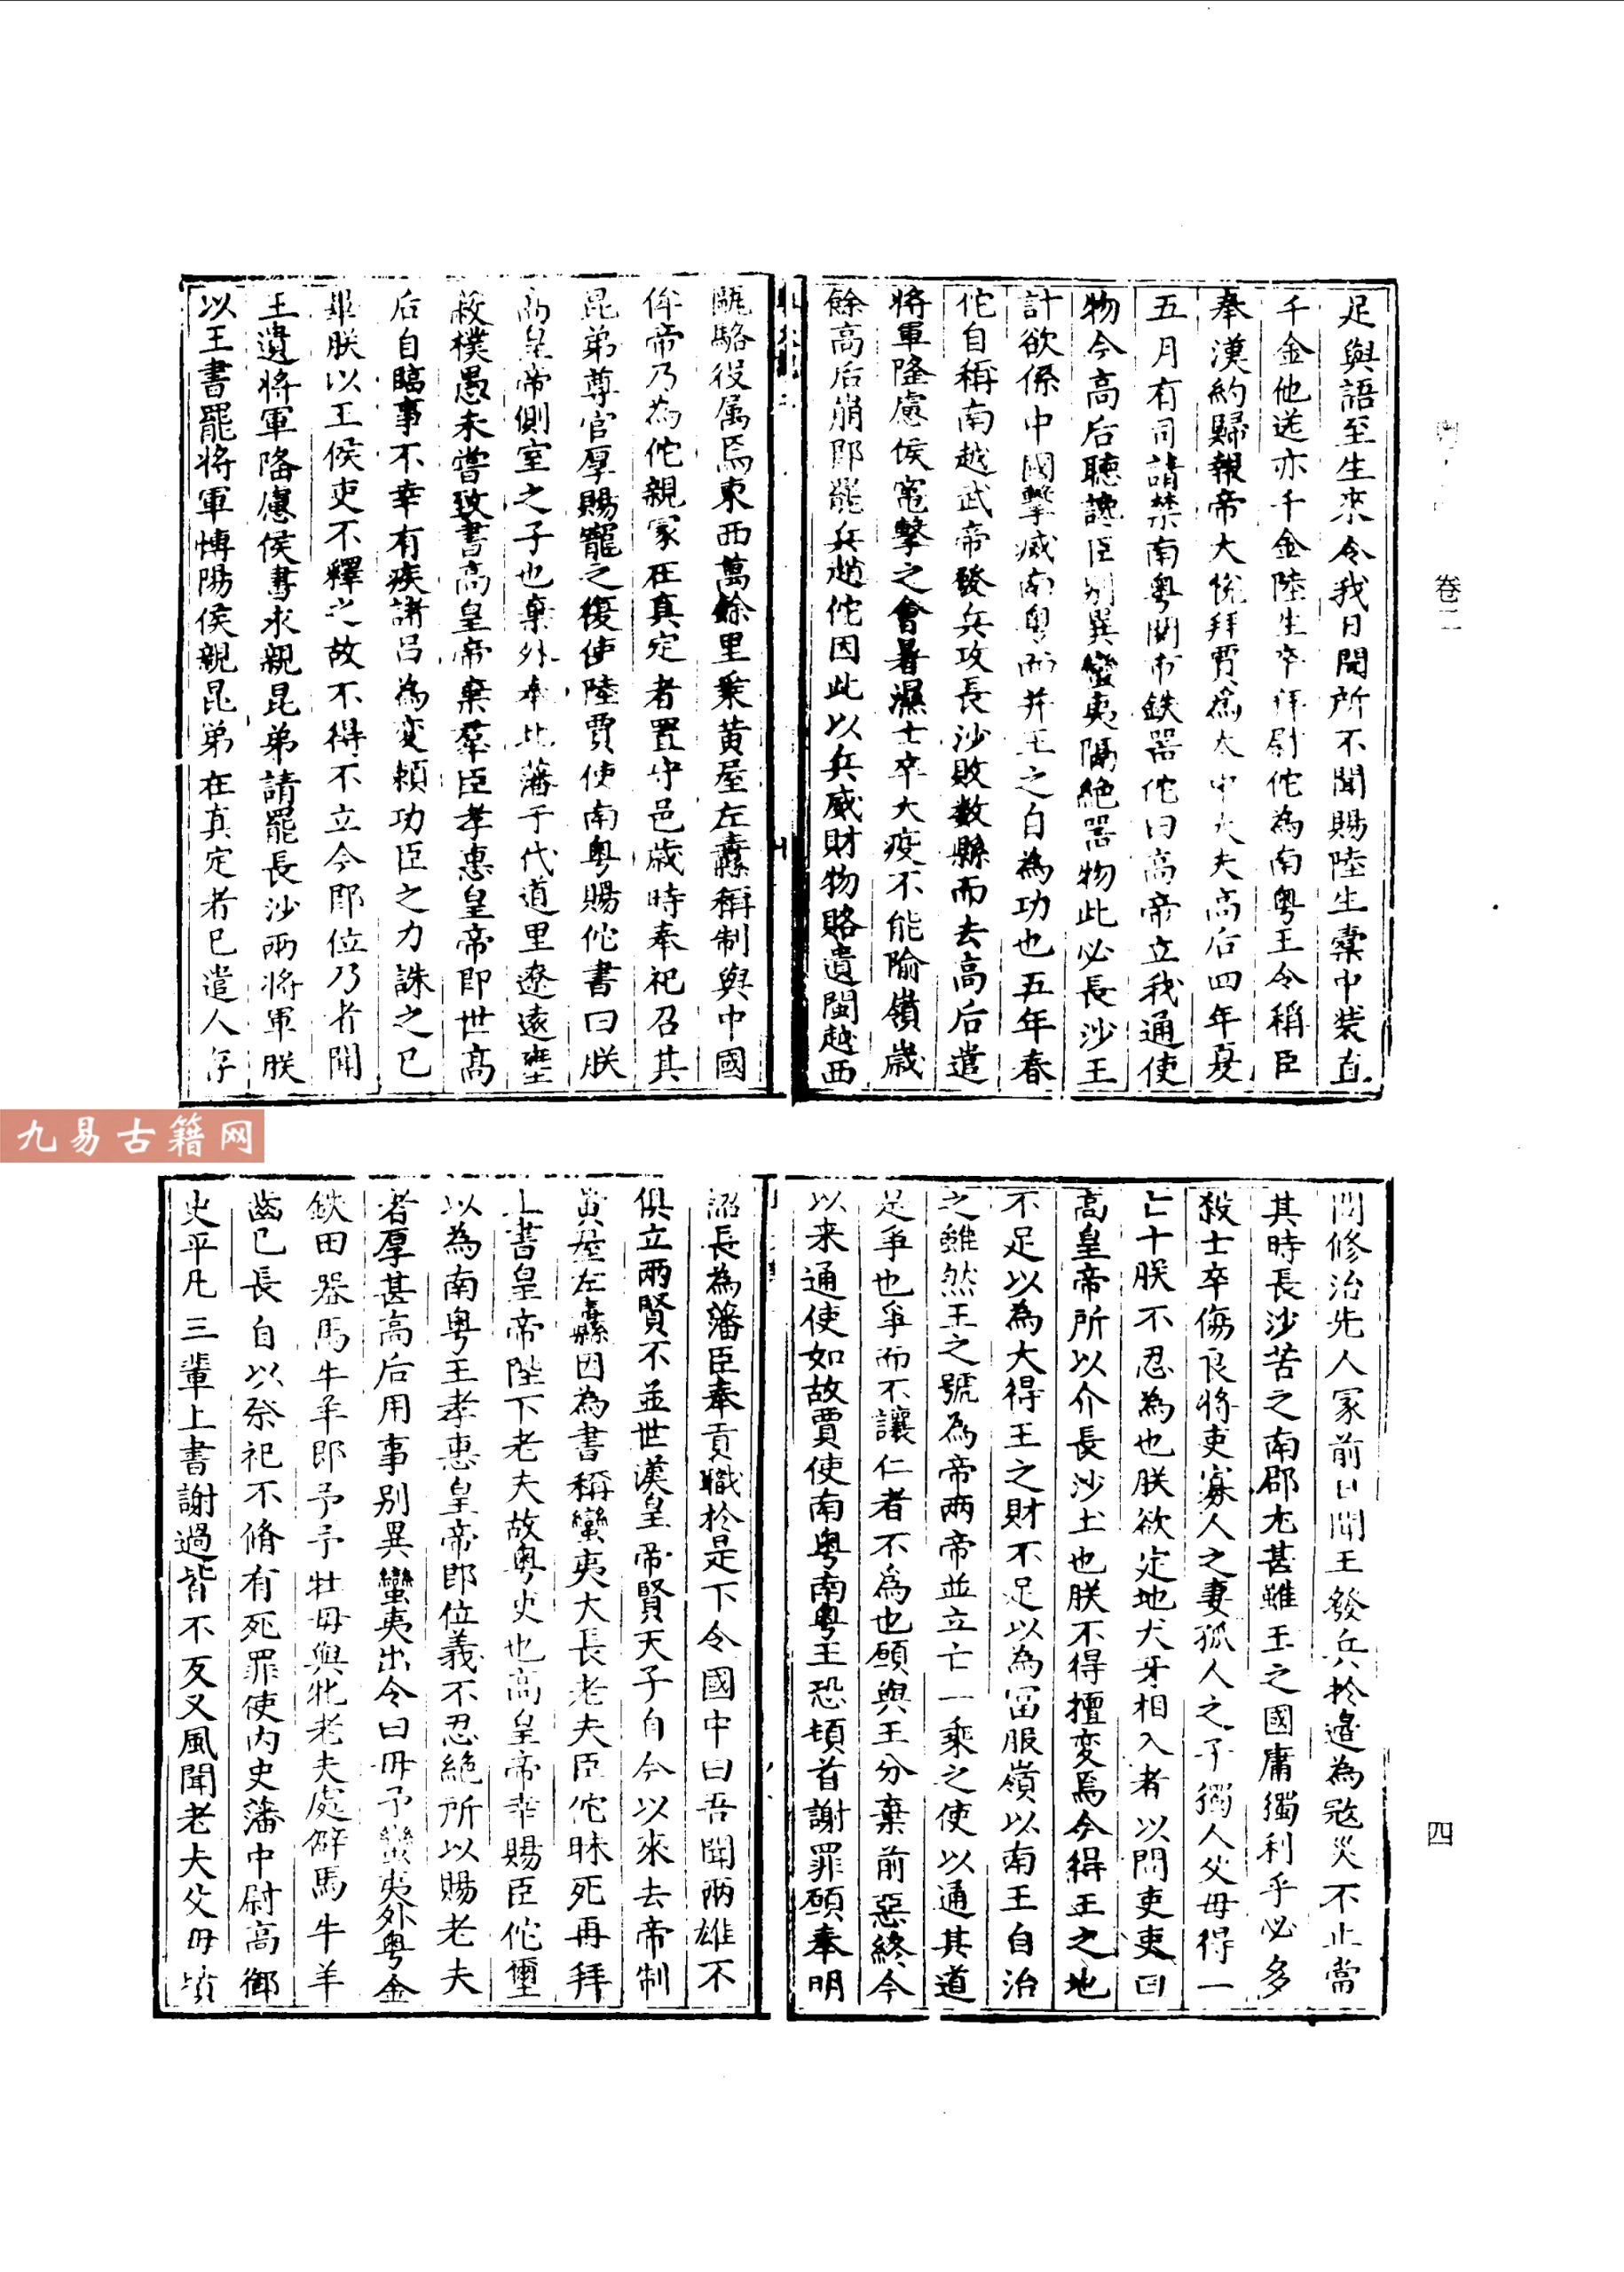 卷二
足與語至生来令我日聞所不聞賜陸生橐中裝直
千金他送亦千金陸生卒拜尉佗為南粤王令稱臣
奉漢約歸報帝大悅拜賈為太中大夫高后四年夏
五月有司請禁南粤関市鉄器佗曰高帝立我通使
物今高后聴讒臣别異蠻夷隔絶器物此必長沙王
計欲係中國擊滅南粤而并王之自為功也五年春
佗自稱南越武帝發兵攻長沙敗数縣而去高后遣
将軍隆慮侯竃擊之會暑濕士卒大疫不能隃嶺歳
餘高后崩即罷兵趙佗因此以兵威財物賂遺閩越西
甌駱役属焉東西萬餘里乗黄屋左纛稱制與中國
侔帝乃為佗親冢在真定者置守邑歳時奉祀召其
昆弟尊官厚賜寵之復使陸賈使南粤賜佗書曰朕
高皇帝側室之子也棄外奉北藩于代道里遼遠壅
蔽樸愚未嘗致書高皇帝棄羣臣孝惠皇帝即世高
后自臨事不幸有疾諸吕為变頼功臣之力誅之已
畢朕以王侯吏不釋之故不得不立今即位乃者聞
王遺将軍隆慮侯書求親昆弟請罷長沙兩将軍朕
以王書罷将軍博陽侯親昆弟在真定者已遣人存
問修治先人冢前日聞王發兵扵邉為㓂災不止當
其時長沙苦之南郡尤甚雖王之國庸獨利乎必多
殺士卒傷良将吏寡人之妻孤人之子獨人父母得一
亡十朕不忍為也朕欲定地犬牙相入者以問吏吏曰
高皇帝所以介長沙土也朕不得擅变焉今得王之地
不足以為大得王之財不足以為富服嶺以南王自治
之雖然王之號為帝两帝並立亡一乘之使以通其道
是爭也爭而不讓仁者不為也願與王分棄前惡終今
以来通使如故賈使南粤南粤王恐頓首謝罪願奉明
詔長為藩臣奉貢職扵是下令國中曰吾聞兩雄不
俱立兩賢不並世漢皇帝賢天子自今以來去帝制
黄屋左纛因為書稱蠻夷大長老夫臣佗昧死再拜
上書皇帝陛下老夫故粤吏也高皇帝幸賜臣佗璽
以為南粤王孝惠皇帝即位義不忍絶所以賜老夫
者厚甚高后用事别異蠻夷出令曰毋予蠻夷外粤金
鉄田器馬牛羊即予予牡毋與牝老夫處僻馬牛羊
齒已長自以祭祀不脩有死罪使内史藩中尉高御
史平凡三輩上書謝過皆不反又風聞老夫父毋墳
四
九易古籍网